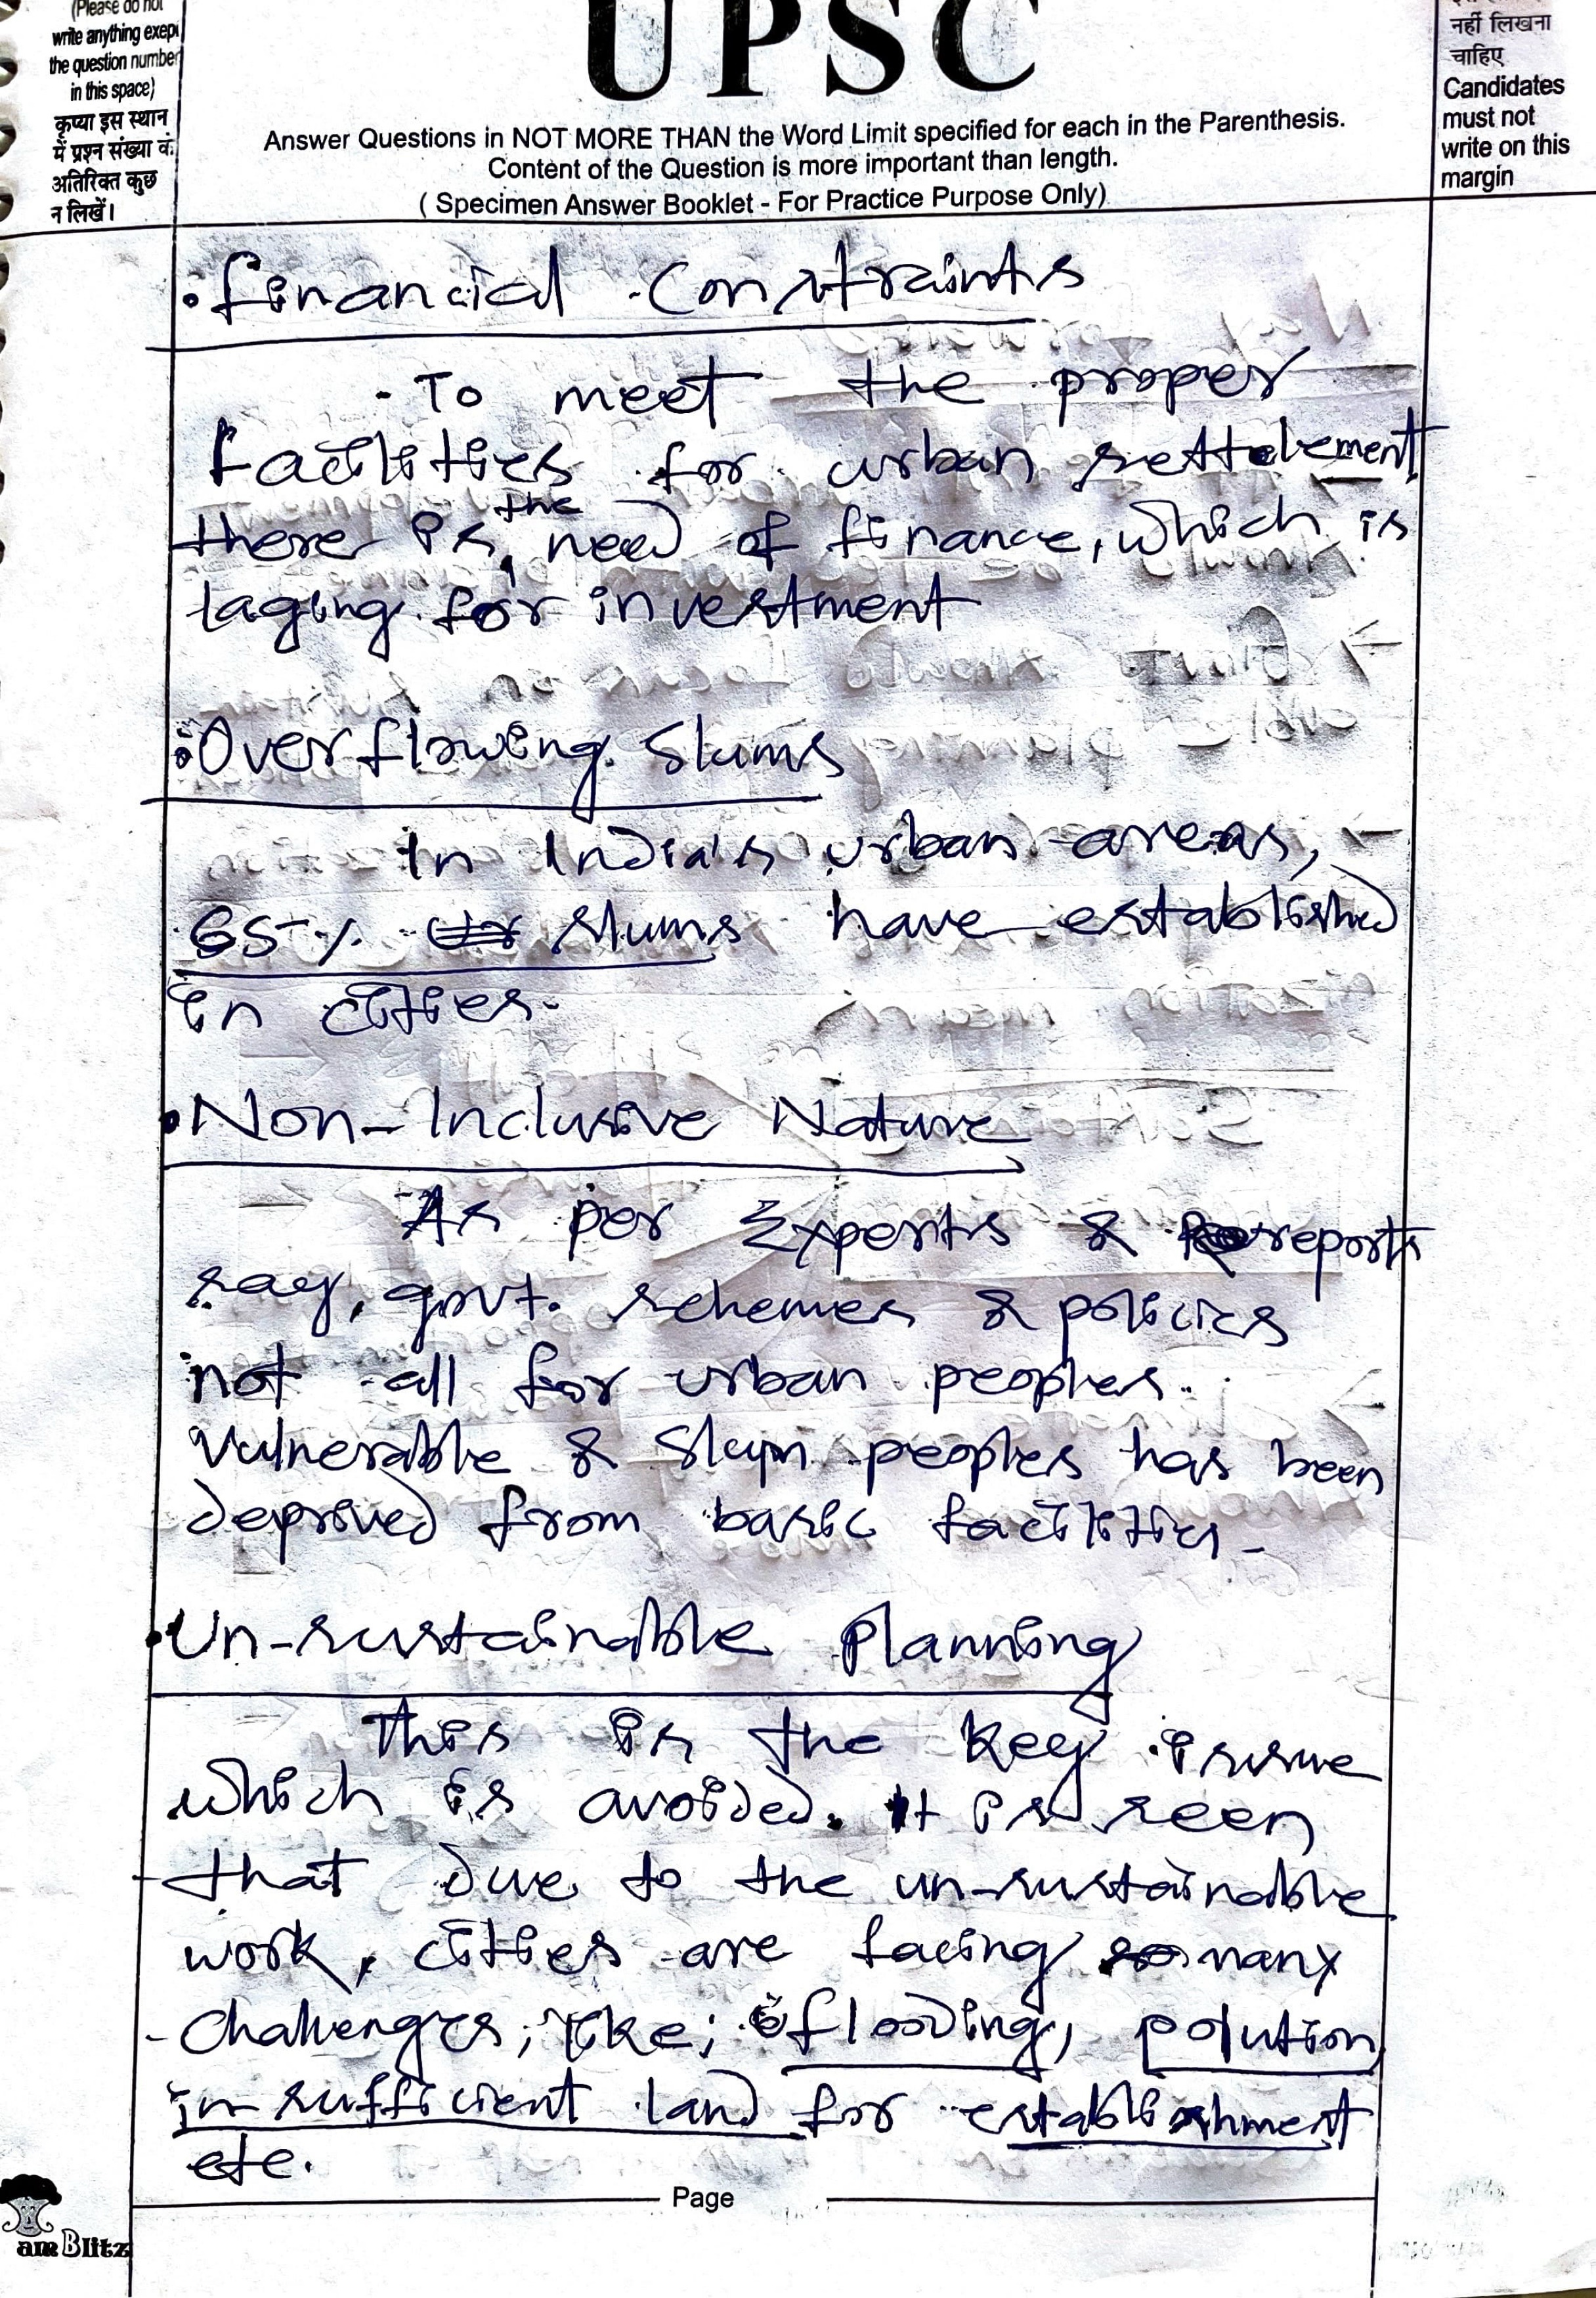 (Please do not
write anything exept
the question number
in this space)
कृप्या इस स्थान
में प्रश्न संख्या के
अतिरिक्त कुछ
न लिखें।
UPSC
Answer Questions in NOT MORE THAN the Word Limit specified for each in the Parenthesis.
Content of the Question is more important than length.
( Specimen Answer Booklet - For Practice Purpose Only)
नहीं लिखना
चाहिए
Candidates
must not
write on this
margin
• Financial Constraints
- To meet the proper
facilities for urban settelement
there is the need of finance, which is
laging for investment
• Overflowing Slums
In India's urban areas,
65% slums have established
in cities.
• Non-Inclusive Nature
As per Experts & reports
say, govt. schemes & policies
not all for urban peoples.
Vulnerable & Slum peoples has been
deprived from basic facilities.
• Un-sustainable Planning
This is the key issue
which is avoided. It is seen
that due to the un-sustainable
work, cities are facing many
challenges, like; flooding, polution,
in-sufficient land for establishment
etc.
Page
am Blitz